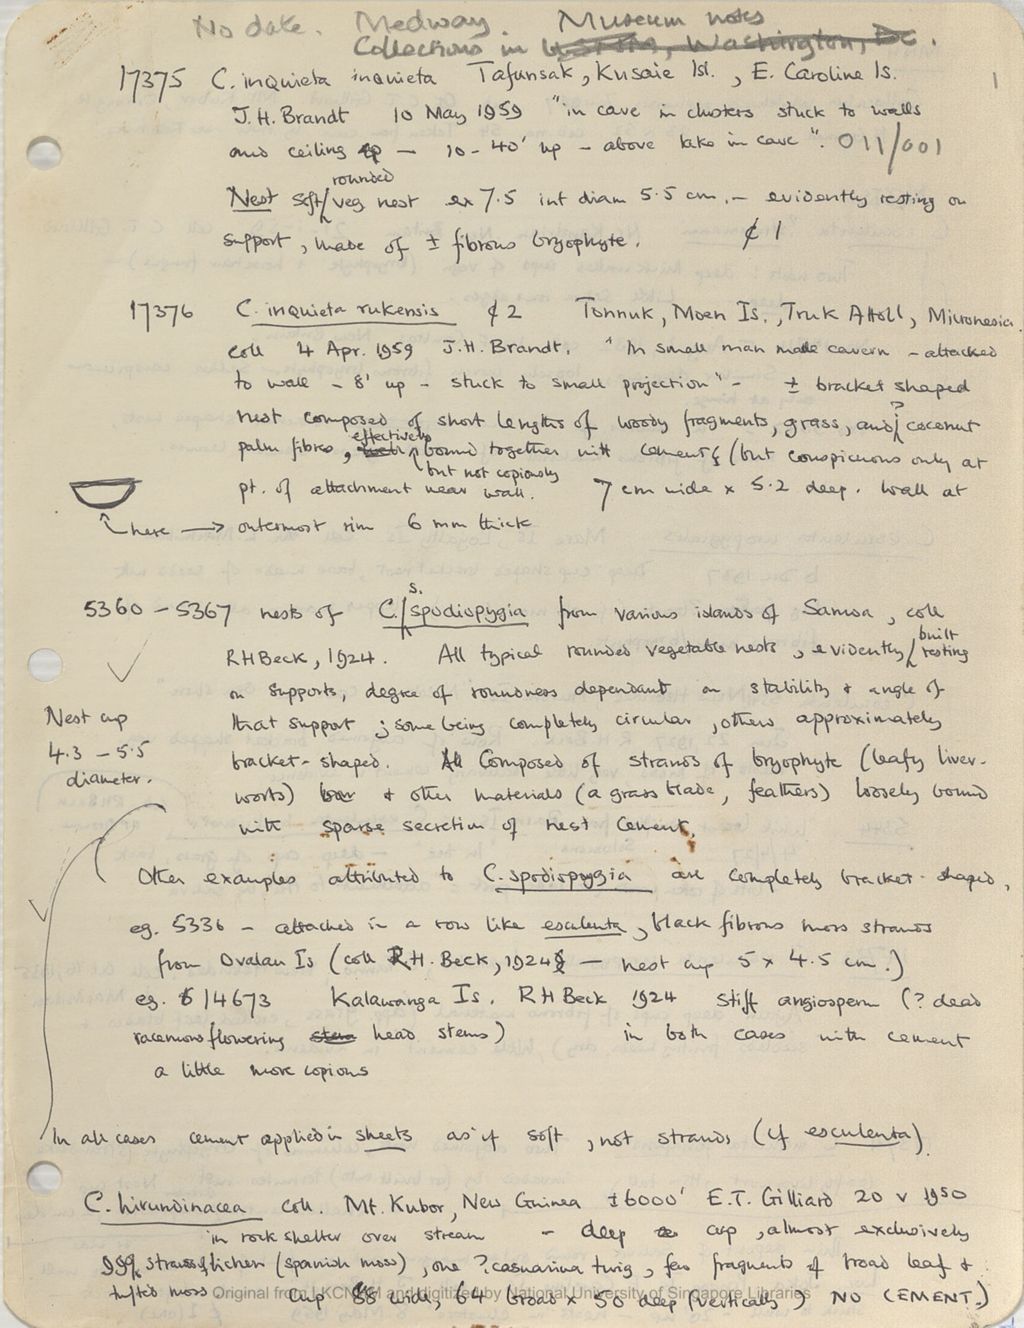 No date. Medway Museum notes
Collections in USNM, Washington, DC.
1
17375 C. inquieta inquieta Tafunsak, Kusaie Isl., E. Caroline Is.
J.H. Brandt 10 May 1959 "in cave in clusters stuck to walls
and ceiling — 10-40' up - above lake in cave". 011/001
rounded
Nest soft/veg nest ex 7.5 int diam 5.5 cm. - evidently resting on
support, made of ± fibrous bryophyte. ¢ 1
17376 C. inquieta rukensis ¢ 2 Tonnuk, Moen Is., Truk Atoll, Micronesia.
coll 4 Apr. 1959 J.H. Brandt. "In small man made cavern - attached
to wall - 8' up - stuck to small projection" - ± bracket shaped
nest composed of short lengths of woody fragments, grass, and ? coconut
palm fibres, effectively bound together with cement (but conspicuous only at
but not copiously
pt. of attachment near wall. 7 cm wide x 5.2 deep. Wall at
here → outermost rim 6 mm thick
5360 - 5367 nests of C. s. spodiopygia from various islands of Samoa, coll
RH Beck, 1924. All typical rounded vegetable nests, evidently built/resting
on supports, degree of roundness dependant on stability & angle of
Nest cup
4.3 - 5.5
diameter.
that support; some being completely circular, others approximately
bracket-shaped. Composed of strands of bryophyte (leafy liver-
worts) & other materials (a grass blade, feathers) loosely bound
with sparse secretion of nest cement.
Other examples attributed to C. spodiopygia are completely bracket-shaped,
eg. 5336 - attached in a row like esculenta, black fibrous moss strands
from Ovalau Is (coll R.H. Beck, 1924 — nest cup 5 x 4.5 cm.)
eg. 14673 Kalawanga Is. RH Beck 1924 stiff angiosperm (? dead
racemous flowering stem head stems) in both cases with cement
a little more copious
In all cases cement applied in sheets as if soft, not strands (cf esculenta).
C. hirundinacea coll. Mt. Kubor, New Guinea ±6000' E.T. Gilliard 20 v 1950
in rock shelter over stream - deep cup, almost exclusively
99% strands of lichen (spanish moss), one ? casuarina twig, few fragments of broad leaf &
tufted moss Cup 88 wide, 64 broad x 50 deep (vertically) NO CEMENT.)
Original from LKCNHM and digitized by National University of Singapore Libraries